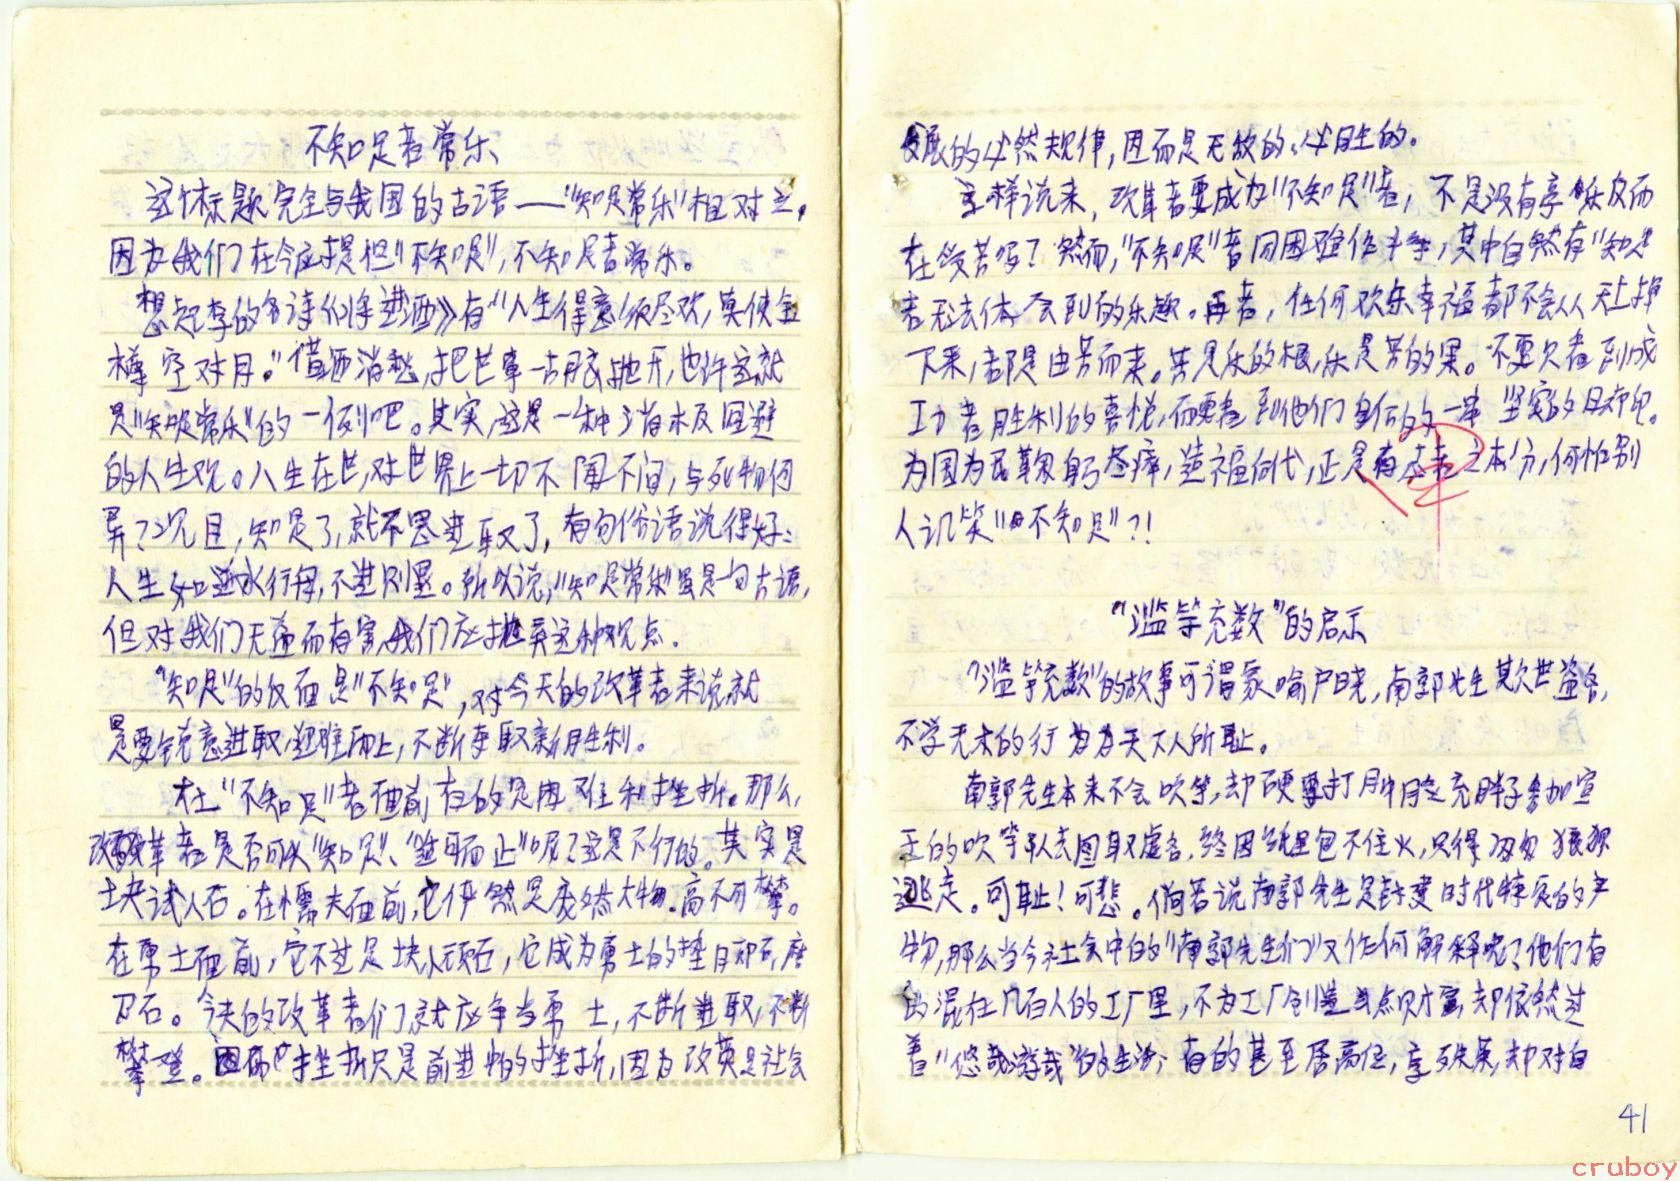 不知足者常乐
这个标题完全与我国的古语——“知足常乐”相对立。
因为我们在今应提但“不知足”，不知足者常乐。
想起李的名诗《将进酒》有“人生得意须尽欢，莫使金
樽空对月。”借酒消愁，把世事一古脑抛开，也许这就
是“知足常乐”的一例吧。其实，这是一种消极回避
的人生观。人生在世，对世界上一切不闻不问，与死物何
异？况且，知足了，就不思进取了，有句俗语说得好：
人生如逆水行舟，不进则退。所以说，“知足常乐”虽是一句古语，
但对我们无益而有害，我们应抛弃这种观点.
“知足”的反面是“不知足”，对今天的改革者来说就
是要锐意进取，迎难而上，不断夺取新胜利。
在“不知足”者面前有的是困难和挫折。那么，
改革者是否可以“知足”、“知难而止”呢？这是不行的。其实是
块试人石。在懦夫面前，它俨然是庞然大物.高不可攀。
在勇士面前，它不过是块顽石，它成为勇士的垫脚石，磨
刀石。今天的改革者们就应争当勇士，不断进取，不断
攀登。因而挫折只是前进中的挫折，因为改革是社会
发展的必然规律，因而是无敌的、必胜的。
这样说来，改革者要成为“不知足”者，不是没有享乐反而
在受苦吗？然而，“不知足”者同困难作斗争，其中自然有“知足”
者无法体会到的乐趣。再者，任何欢乐幸福都不会从天上掉
下来，都是由苦而来。苦是乐的根，乐是苦的果。不要只看到成
功者胜利的喜悦，而要看到他们身后的一串坚实的脚印。
为国为民鞠躬尽瘁，造福后代，正是有志者之本分，何怕别
人讥笑“不知足”？！
“滥竽充数”的启示
“滥竽充数”的故事可谓家喻户晓，南郭先生欺世盗名，
不学无术的行为为天下人所耻。
南郭先生本来不会吹竽，却硬要打肿脸充胖子参加宣
王的吹竽队去图取虚名，终因纸里包不住火，只得匆匆狼狈
逃走。可耻！可悲。倘若说南郭先生是封建时代特有的产
物，那么当今社会中的“南郭先生们”又作何解释呢？他们有
的混在几百人的工厂里，不为工厂创造半点财富，却依然过
着“悠哉游哉”的生活；有的甚至居高位，享殊荣，却对自
41
cruboy